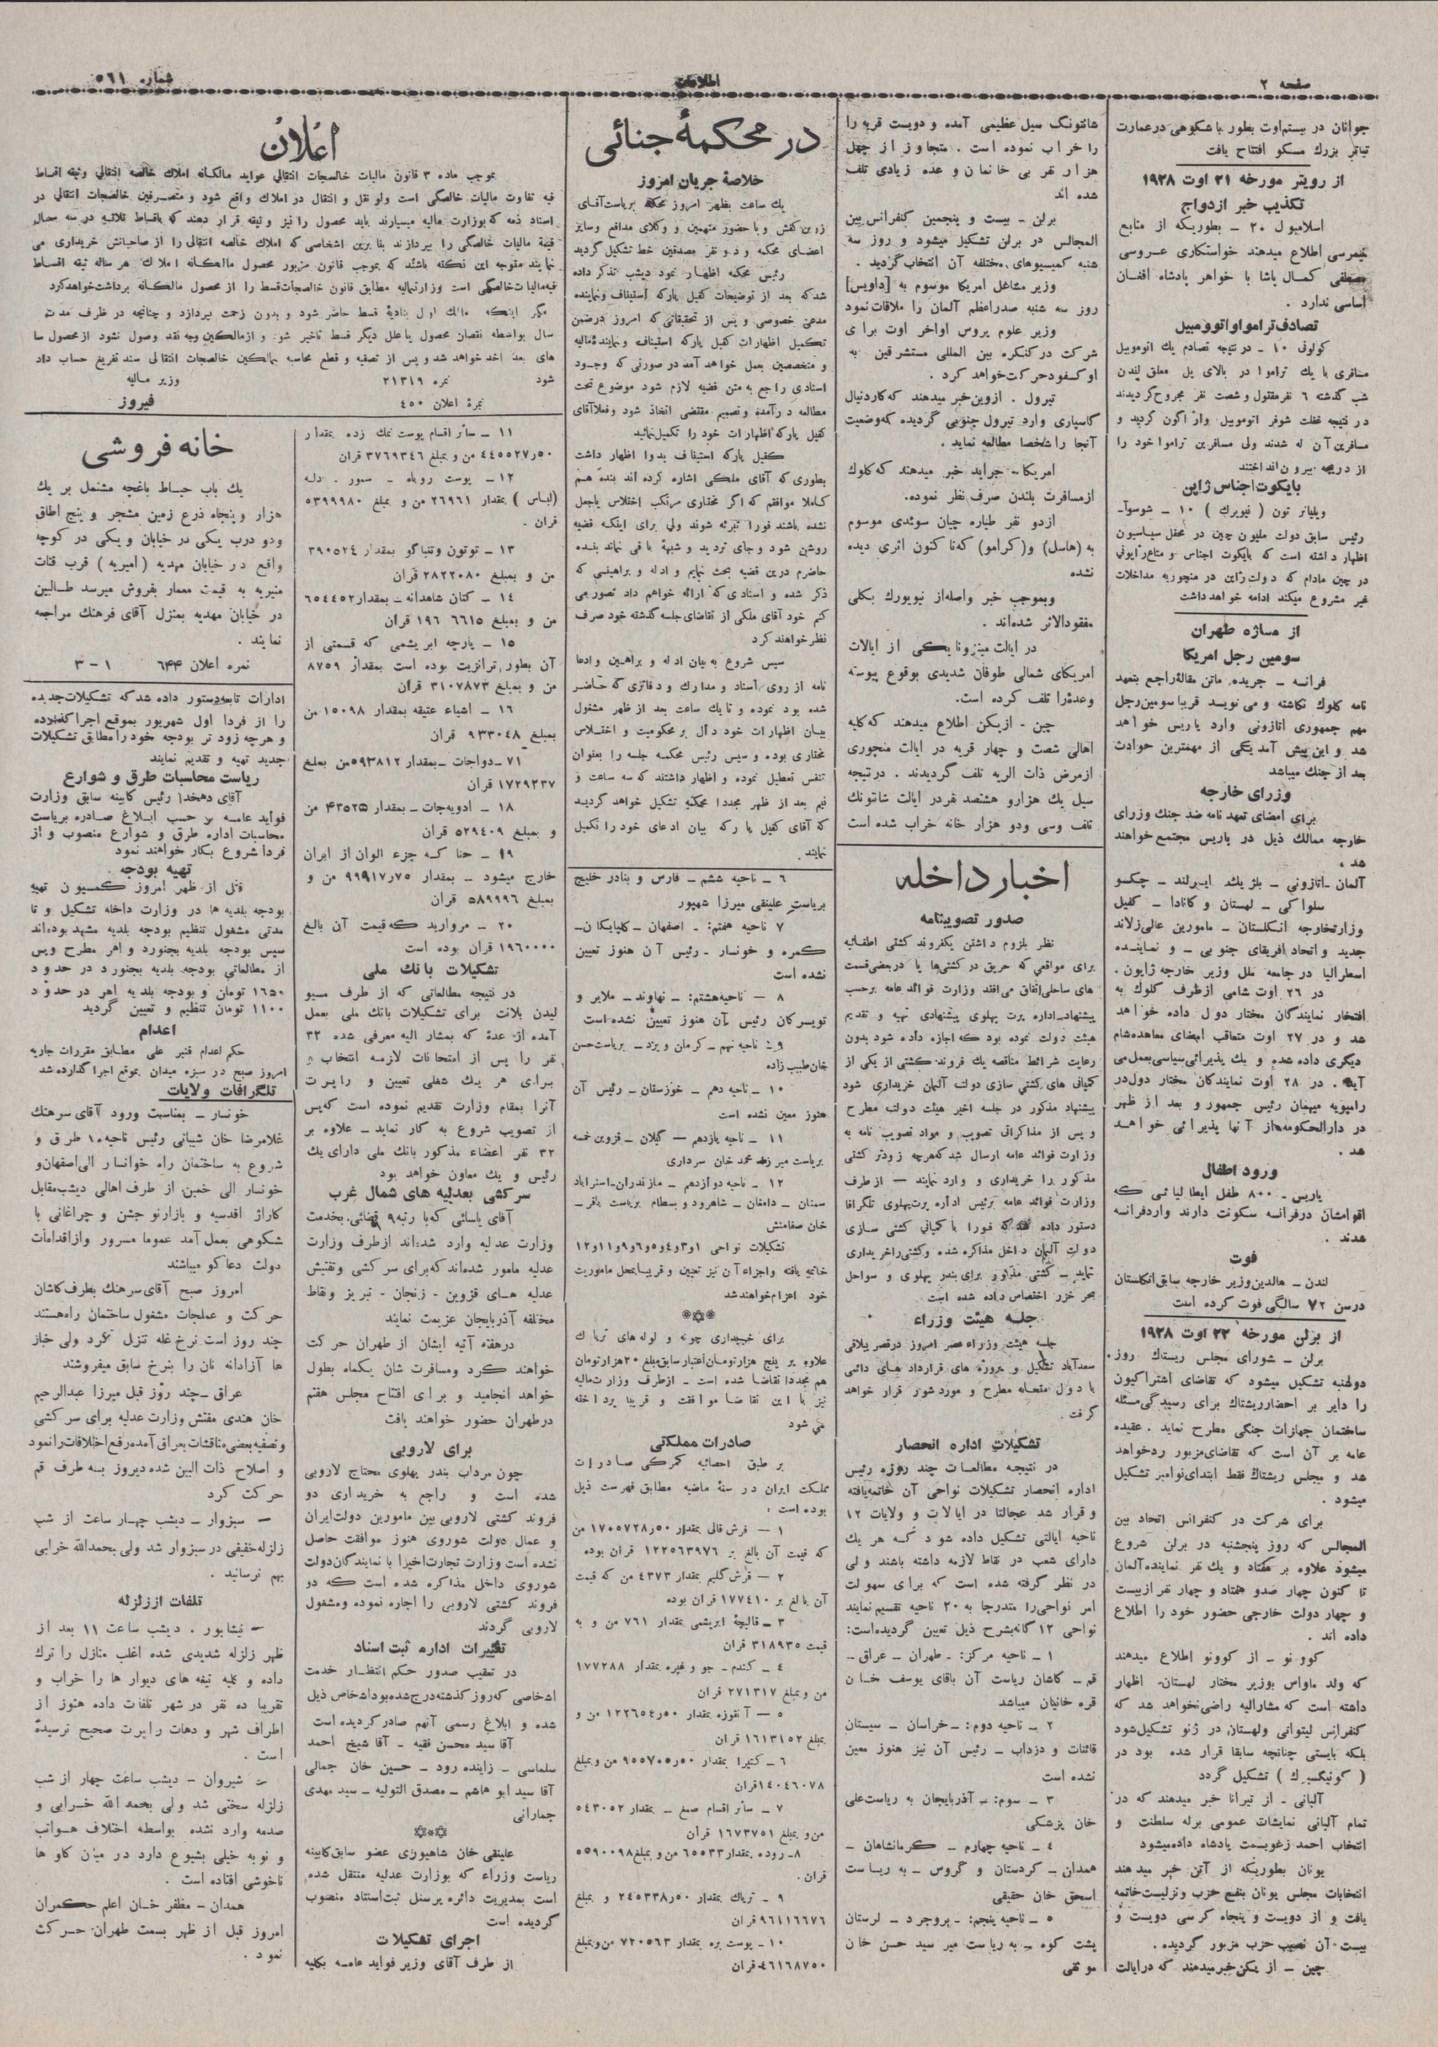 صفحه ۲
اطلاعات
شماره ۵٦۱
جوانان در بیستم اوت بطور با شکوهی در عمارت
تیاتر بزرك مسکو افتتاح یافت
از رویتر مورخه ۲۱ اوت ۱۹۲۸
تکذیب خبر ازدواج
اسلامبول ۲۰ ـ بطوریکه از منابع
اطلاع میدهند خواستکاری عروسی
مصطفی کمال پاشا با خواهر پادشاه افغان
اساسی ندارد .
تصادف تراموا و اتومبیل
کولونی ۱۰ ـ در نتیجه تصادم یك اتومبیل
مسافری با یك تراموا در بالای پل معلق لیندن
شب گذشته ٦ نفر مقتول و شصت نفر مجروح گردیدند
در نتیجه غفلت شوفر اتومبیل واژگون گردید و
مسافرین آن له شدند ولی مسافرین تراموا خود را
از دریچه بیرون انداختند
بایکوت اجناس ژاپن
ویلیامز تون ( نیویرك ) ۱۰ ـ
رئیس سابق دولت ملیون چین در محفل سیاسیون
اظهار داشته است که بایکوت اجناس و متاع ژاپونی
در چین مادام که دولت ژاپن در منچوریه مداخلات
غیر مشروع میکند ادامه خواهد داشت
از مسازه طهران
سومین رجل امریکا
فرانسه ـ جریده ماتن مقالۀ راجع بتعهد
نامه کلوك نگاشته و می نویسد قریبا سومین رجل
مهم جمهوری اتازونی وارد پاریس خواهد
شد و این پیش آمد یکی از مهمترین حوادث
بعد از جنك میباشد
وزرای خارجه
برای امضای تعهد نامه ضد جنك وزرای
خارجه ممالك ذیل در پاریس مجتمع خواهند
شد .
آلمان ـ اتازونی ـ بلژیك ـ ایرلند ـ چکو
سلواکی ـ لهستان و کانادا ـ کفیل
وزارتخارجه انگلستان ـ مامورین عالی زلاند
جدید و اتحاد افریقای جنوبی ـ و نماینده
استرالیا در جامعه ملل وزیر خارجه ژاپون .
در ۲٦ اوت شامی از طرف کلوك به
افتخار نمایندگان مختار دول داده خواهد
شد و در ۲۷ اوت متعاقب امضای معاهده شام
دیگری داده شده و یك پذیرائی سیاسی بعمل می
آید . در ۲۸ اوت نمایندگان مختار دول در
رامبویه میهمان رئیس جمهور و بعد از ظهر
در دارالحکومه از آنها پذیرائی خواهد
شد .
ورود اطفال
پاریس ـ ۸۰۰ طفل ایطالیائی که
اقوامشان در فرانسه سکونت دارند وارد فرانسه
شدند .
فوت
لندن ـ هالدین وزیر خارجه سابق انگلستان
در سن ۷۲ سالگی فوت کرده است
از برلن مورخه ۲۲ اوت ۱۹۲۸
برلن ـ شورای مجلس ریشتاك روز
دوشنبه تشکیل میشود که تقاضای اشتراکیون
را دایر بر احضار ریشتاك برای رسیدگی مسئله
ساختمان جهازات جنگی مطرح نماید . عقیده
عامه بر آن است که تقاضای مزبور رد خواهد
شد و مجلس ریشتاك فقط ابتدای نوامبر تشکیل
میشود .
برای شرکت در کنفرانس اتحاد بین
المجالس که روز پنجشنبه در برلن شروع
میشود علاوه بر هفتاد و یك نفر نماینده آلمان
تا کنون چهار صد و هشتاد و چهار نفر از بیست
و چهار دولت خارجی حضور خود را اطلاع
داده اند .
کوونو ـ از کوونو اطلاع میدهند
که ولد ماراس بوزیر مختار لهستان اظهار
داشته است که مشارالیه راضی نخواهد شد که
کنفرانس لیتوانی و لهستان در ژنو تشکیل شود
بلکه بایستی چنانچه سابقا قرار شده بود در
( کونیگسبرك ) تشکیل گردد
آلبانی . از تیرانا خبر میدهند که در
تمام آلبانی نمایشات عمومی برله سلطنت و
انتخاب احمد زغوبسمت پادشاه داده میشود
یونان بطوریکه از آتن خبر میدهند
انتخابات مجلس یونان بنفع حزب ونزلیست خاتمه
یافت و از دویست و پنجاه کرسی دویست و
بیست آن نصیب حزب مزبور گردیده .
چین ـ از پکن خبر میدهند که در ایالت
شانتونگ سیل عظیمی آمده و دویست قریه را
را خراب نموده است . متجاوز از چهل
هزار نفر بی خانمان و عده زیادی تلف
شده اند
برلن ـ بیست و پنجمین کنفرانس بین
المجالس در برلن تشکیل میشود و روز سه
شنبه کمیسیونهای مختلفه آن انتخاب گردید .
وزیر مشاغل امریکا موسوم به [داویس]
روز سه شنبه صدراعظم آلمان را ملاقات نمود
وزیر علوم پروس اواخر اوت برای
شرکت در کنگره بین المللی مستشرقین به
اوکسفود حرکت خواهد کرد .
تیرول . از وین خبر میدهند که کاردینال
گاسپاری وارد تیرول جنوبی گردیده که وضعیت
آنجا را شخصا مطالعه نماید .
امریکا ـ جراید خبر میدهند که کلوك
از مسافرت بلندن صرف نظر نموده .
از دو نفر طیاره چیان سوئدی موسوم
به (هاسل) و (کرامر) که تا کنون اثری دیده
نشده
و بموجب خبر واصله از نیویورك بکلی
مفقودالاثر شده اند .
در ایالت مینزوتا یکی از ایالات
امریکای شمالی طوفان شدیدی بوقوع پیوسته
و عدۀ را تلف کرده است .
چین ـ از پکن اطلاع میدهند که کلیه
اهالی شصت و چهار قریه در ایالت منچوری
از مرض ذات الریه تلف گردیدند . در نتیجه
سیل یك هزار و هشتصد نفر در ایالت شانتونك
تلف و سی و دو هزار خانه خراب شده است
اخبار داخله
صدور تصویبنامه
نظر بلزوم داشتن یکفروند کشتی اطفائیه
برای مواقعی که حریق در کشتی ها یا در بعضی قسمت
های ساحلی اتفاق می افتد وزارت فوائد عامه برحسب
پیشنهاد اداره پرت پهلوی پیشنهادی تهیه و تقدیم
هیئت دولت نموده بود که اجازه داده شود بدون
رعایت شرائط مناقصه یك فروند کشتی از یکی از
کمپانی های کشتی سازی دولت آلمان خریداری شود
پیشنهاد مذکور در جلسه اخیر هیئت دولت مطرح
و پس از مذاکراتی تصویب و مواد تصویب نامه به
وزارت فوائد عامه ارسال شد که هر چه زودتر کشتی
مذکور را خریداری و وارد نمایند ـ از طرف
وزارت فوائد عامه برئیس اداره پرت پهلوی تلگرافا
دستور داده شد که فورا با کمپانی کشتی سازی
دولت آلمان داخل مذاکره شده و کشتی را خریداری
نماید ـ کشتی مذکور برای بندر پهلوی و سواحل
بحر خزر اختصاص داده شده است .
جلسه هیئت وزراء
جلسه هیئت وزراء عصر امروز در قصر ییلاقی
سعدآباد تشکیل و پروژه های قرارداد های دائمی
با دول متعاهد مطرح و مورد شور قرار خواهد
گرفت .
تشکیلات اداره انحصار
در نتیجه مطالعات چند روزه رئیس
اداره انحصار تشکیلات نواحی آن خاتمه یافته
و قرار شد عجالتا در ایالات و ولایات ۱۲
ناحیه ایالتی تشکیل داده شود که هر یك
دارای شعب در نقاط لازمه داشته باشند ولی
در نظر گرفته شده است که برای سهولت
امر نواحی را متدرجا به ۲۰ ناحیه تقسیم نمایند
نواحی ۱۲ گانه بشرح ذیل تعیین گردیده است :
۱ ـ ناحیه مرکز : ـ طهران ـ عراق ـ
قم ـ کاشان ریاست آن باقای یوسف خان
قره خانیان میباشد
۲ ـ ناحیه دوم : ـ خراسان ـ سیستان
قائنات و دزداب ـ رئیس آن نیز هنوز معین
نشده است
۳ ـ سوم : ـ آذربایجان به ریاست علی
خان پزشکی
٤ ـ ناحیه چهارم ـ کرمانشاهان ـ
همدان ـ کردستان و گروس ـ به ریاست
اسحق خان حقیقی
۵ ـ ناحیه پنجم : ـ بروجرد ـ لرستان
پشت کوه ـ به ریاست میر سید حسن خان
موثقی
در محکمۀ جنائی
خلاصۀ جریان امروز
یك ساعت بظهر امروز محکمه بریاست آقای
زرین کفش و با حضور متهمین و وکلای مدافع و سایر
اعضای محکمه و دو نفر مصدقین خط تشکیل گردید
رئیس محکمه اظهار نمود دیشب تذکر داده
شد که بعد از توضیحات کفیل پارکه استیناف و نماینده
مدعی خصوصی و پس از تحقیقاتی که امروز در ضمن
تکمیل اظهارات کفیل پارکه استیناف و نمایندۀ مالیه
و متخصصین بعمل خواهد آمد در صورتی که وجود
اسنادی راجع به متن قضیه لازم شود موضوع تحت
مطالعه درآمده و تصمیم مقتضی اتخاذ شود و فعلا آقای
کفیل پارکه اظهارات خود را تکمیل نمائید
کفیل پارکه استیناف بدوا اظهار داشت
بطوری که آقای ملکی اشاره کرده اند بنده هم
کاملا موافقم که اگر مختاری مرتکب اختلاس یا جعل
نشده باشند فورا تبرئه شوند ولی برای اینکه قضیه
روشن شود و جای تردید و شبهۀ باقی نماند بنده
حاضرم درین قضیه بحث نمایم و ادله و براهینی که
ذکر شده و اسنادی که ارائه خواهم داد تصور می
کنم خود آقای ملکی از تقاضای جلسه گذشته خود صرف
نظر خواهند کرد
سپس شروع به بیان ادله و براهین و ادعا
نامه از روی اسناد و مدارك و دفاتری که حاضر
شده بود نموده و تا یك ساعت بعد از ظهر مشغول
بیان اظهارات خود دال بر محکومیت و اختلاس
مختاری بوده و سپس رئیس محکمه جلسه را بعنوان
تنفس تعطیل نموده و اظهار داشتند که سه ساعت و
نیم بعد از ظهر مجددا محکمه تشکیل خواهد گردید
که آقای کفیل پارکه بیان ادعای خود را تکمیل
نمایند .
٦ ـ ناحیه ششم ـ فارس و بنادر خلیج
بریاست علینقی میرزا شهپور
۷ ناحیه هفتم : ـ اصفهان ـ گلپایگان ـ
کمره و خونسار ـ رئیس آن هنوز تعیین
نشده است
۸ ـ ناحیه هشتم : ـ نهاوند ـ ملایر و
تویسرکان رئیس آن هنوز تعیین نشده است
۹ ـ ناحیه نهم ـ کرمان و یزد ـ بریاست حسن
خان طبیب زاده
۱۰ ـ ناحیه دهم ـ خوزستان ـ رئیس آن
هنوز معین نشده است
۱۱ ـ ناحیه یازدهم ـ گیلان ـ قزوین خمسه
بریاست میرزا محمد خان سرداری
۱۲ ـ ناحیه دوازدهم ـ مازندران ـ استراباد
سمنان ـ دامغان ـ شاهرود و بسطام بریاست باقر ـ
خان صفامنش
تشکیلات نواحی ۱و۳و٤و۵و٦و۹و۱۱و۱۲
خاتمه یافته و اجزاء آن نیز تعیین و قریبا بمحل ماموریت
خود اعزام خواهند شد
برای خریداری چوبه و لوله های تریاك
علاوه بر پنج هزار تومان اعتبار سابق مبلغ ۲۰ هزار تومان
هم مجددا تقاضا شده است ـ از طرف وزارت مالیه
نیز با این تقاضا موافقت و قریبا پرداخته
می شود
صادرات مملکتی
بر طبق احصائیه گمرکی صادرات
مملکت ایران در سنۀ ماضیه مطابق فهرست ذیل
بوده است :
۱ ـ فرش قالی بمقدار ۵۰ر۱۷۰۵۷۲۸ من
که قیمت آن بالغ بر ۱۲۲۵٦۳۹۷٦ قران بوده
۲ ـ فرش گلیم بمقدار ٤۳۷۳ من که قیمت
آن بالغ بر ۱۷۷٤۱۰ قران بوده
۳ ـ قالیچۀ ابریشمی بمقدار ۷٦۱ من و به
قیمت ۳۱۸۹۳۵ قران
٤ ـ گندم ـ جو و غیره بمقدار ۱۷۷۲۸۸
من و بمبلغ ۲۷۱۳۱۷ قران
۵ ـ آنقوزه بمقدار ۵۰ر۱۲۲٦۵٤ من و
بمبلغ ۱٦۱۳۱۵۲ قران
٦ ـ کتیرا بمقدار ۵۰ر۹۵۵۷۰۵ من و بمبلغ
۱٤۰٤٦۰۷۸ قران
۷ ـ سائر اقسام صمغ ـ بمقدار ۵٤۳۰۵۲
من و بمبلغ ۱٦۷۳۷۵۱ قران
۸ ـ روده بمقدار ٦۵۵۳۳ من و بمبلغ ۵۵۹۰۰۹۸
قران .
۹ ـ تریاك بمقدار ۵۰ر۲٤۵۳۳۸ و بمبلغ
۹٦۱۱٦٦۷٦ قران
۱۰ ـ پوست بره بمقدار ۷۲۰۵٦۳ من و بمبلغ
٤٦۱٦۸۷۵۰ قران
اعلان
بموجب ماده ۳ قانون مالیات خالصجات انتقالی عواید مالکانه املاك خالصه انتقالی وثیقه اقساط
فیه تفاوت مالیات خالصگی است ولو نقل و انتقال در املاك واقع شود و متصرفین خالصجات انتقالی در
اسناد ذمه که بوزارت مالیه میسپارند باید محصول را نیز و ثیقه قرار دهند که باقساط ثلاثه در سه سال
قیمة مالیات خالصگی را بپردازند بنا برین اشخاصی که املاك خالصه انتقالی را از صاحبانش خریداری می
نمایند متوجه این نکته باشند که بموجب قانون مزبور محصول مالکانه املاك هر ساله وثیقه اقساط
فیه مالیات خالصگی است وزارتمالیه مطابق قانون خالصجات قسط را از محصول مالکانه برداشت خواهد کرد
مگر اینکه مالك اول بتادیۀ قسط حاضر شود و بدون زحمت بپردازد و چنانچه در ظرف مدت
سال بواسطه نقصان محصول یا علل دیگر قسط تاخیر شود و از مالکین وجه نقد وصول نشود از محصول سا
های بعد اخذ خواهد شد و پس از تصفیه و قطع محاسبه بمالکین خالصجات انتقالی سند تفریغ حساب داد
شود نمره ۲۱۳۱۹ وزیر مالیه
نمرۀ اعلان ٤۵۰ فیروز
۱۱ ـ سائر اقسام پوست نمك زده بمقدار
۵۰ر٤٤۵۵۲۷ من و بمبلغ ۳۷٦۹۳٤٦ قران
۱۲ ـ پوست روباه ـ سمور ـ دله
(لباس) بمقدار ۲٦۹٦۱ من و بمبلغ ۵۳۹۹۹۸۰
قران .
۱۳ ـ توتون و تنباکو بمقدار ۳۹۰۵۲٤
من و بمبلغ ۲۸۲۲۰۸۰ قران
۱٤ ـ کتان شاهدانه ـ بمقدار ٦۵٤٤۵۲
من و بمبلغ ٦٦۱۵ ۱۹٦ قران
۱۵ ـ پارچه ابریشمی که قسمتی از
آن بطور ترانزیت بوده است بمقدار ۸۷۵۹
من و بمبلغ ۳۱۰۷۸۷۳ قران
۱٦ ـ اشیاء عتیقه بمقدار ۱۵۰۹۸ من
بمبلغ ۹۳۳۰٤۸ قران
۷۱ ـ دواجات ـ بمقدار ۵۹۳۸۱۲ من بمبلغ
۱۷۲۹۲۳۷ قران
۱۸ ـ ادویه جات ـ بمقدار ٤۲۵۲۵ من
و بمبلغ ۵۲۹٤۰۹ قران
۱۹ ـ حنا که جزء الوان از ایران
خارج میشود ـ بمقدار ۷۵ر۹۹۹۱۷ من و
بمبلغ ۵۸۹۹۹٦ قران
۲۰ ـ مروارید که قیمت آن بالغ
۱۹٦۰۰۰۰ قران بوده است
تشکیلات بانك ملی
در نتیجه مطالعاتی که از طرف مسیو
لیندن بلات برای تشکیلات بانك ملی بعمل
آمده از عدۀ که بمشار الیه معرفی شده ۳۲
نفر را پس از امتحانات لازمه انتخاب و
برای هر یك شغلی تعیین و راپرت
آنرا بمقام وزارت تقدیم نموده است که پس
از تصویب شروع به کار نماید ـ علاوه بر
۳۲ نفر اعضاء مذکور بانك ملی دارای یك
رئیس و یك معاون خواهد بود
سرکشی بعدلیه های شمال غرب
آقای یاسائی که با رتبه ۹ قضائی بخدمت
وزارت عدلیه وارد شده اند از طرف وزارت
عدلیه مامور شده اند که برای سرکشی و تفتیش
عدلیه های قزوین ـ زنجان ـ تبریز و نقاط
مختلفه آذربایجان عزیمت نمایند
در هفته آتیه ایشان از طهران حرکت
خواهند کرد و مسافرت شان یکماه بطول
خواهد انجامید و برای افتتاح مجلس هفتم
در طهران حضور خواهند یافت
برای لاروبی
چون مرداب بندر پهلوی محتاج لاروبی
شده است و راجع به خریداری دو
فروند کشتی لاروبی بین مامورین دولت ایران
و عمال دولت شوروی هنوز موافقت حاصل
نشده است وزارت تجارت اخیرا با نمایندگان دولت
شوروی داخل مذاکره شده است که دو
فروند کشتی لاروبی را اجاره نموده و مشغول
لاروبی گردند
تغییرات اداره ثبت اسناد
در تعقیب صدور حکم انتظار خدمت
اشخاصی که روز گذشته درج شده بود اشخاص ذیل
شده و ابلاغ رسمی آنهم صادر گردیده است
آقا سید محسن فقیه ـ آقا شیخ احمد
سلماسی ـ زاینده رود ـ حسین خان جمالی
آقا سید ابو هاشم ـ مصدق التولیه ـ سید مهدی
جمارانی
علینقی خان شاهپوری عضو سابق کابینه
ریاست وزراء که بوزارت عدلیه منتقل شده
است بمدیریت دائره پرسنل ثبت اسناد منصوب
گردیده است
اجرای تشکیلات
از طرف آقای وزیر فواید عامه بکلیه
خانه فروشی
یك باب حیاط باغچه مشتمل بر یك
هزار و پنجاه ذرع زمین مشجر و پنج اطاق
و دو درب یکی در خیابان و یکی در کوچه
واقع در خیابان مهدیه (امیریه) قرب قنات
منیریه به قیمت معمار بفروش میرسد طالبین
در خیابان مهدیه بمنزل آقای فرهنك مراجعه
نمایند .
نمره اعلان ٦٤٤ ۱ ـ ۳
ادارات تابعه دستور داده شد که تشکیلات جدیده
را از فردا اول شهریور بموقع اجرا گذارده
و هر چه زود تر بودجه خود را مطابق تشکیلات
جدید تهیه و تقدیم نمایند
ریاست محاسبات طرق و شوارع
آقای دهخدا رئیس کابینه سابق وزارت
فواید عامه بر حسب ابلاغ صادره بریاست
محاسبات اداره طرق و شوارع منصوب و از
فردا شروع بکار خواهند نمود
تهیه بودجه
قبل از ظهر امروز کمسیون تهیه
بودجه بلدیه ها در وزارت داخله تشکیل و تا
مدتی مشغول تنظیم بودجه بلدیه مشهد بوده اند
سپس بودجه بلدیه بجنورد و اهر مطرح و پس
از مطالعاتی بودجه بلدیه بجنورد در حدود
۱٦۵۰ تومان و بودجه بلدیه اهر در حدود
۱۱۰۰ تومان تنظیم و تعیین گردید
اعدام
حکم اعدام قنبر علی مطابق مقررات جاریه
امروز صبح در سبزه میدان بموقع اجرا گذارده شد
تلگرافات ولایات
خونسار ـ بمناسبت ورود آقای سرهنك
غلامرضا خان شیبانی رئیس ناحیه ۱۰ طرق و
شروع به ساختمان راه خوانسار الی اصفهان و
خونسار الی خمین از طرف اهالی دیشب مقابل
کاراژ اقدسیه و بازار نو جشن و چراغانی با
شکوهی بعمل آمد عموما مسرور و از اقدامات
دولت دعاگو میباشند
امروز صبح آقای سرهنك بطرف کاشان
حرکت و عملجات مشغول ساختمان راه هستند
چند روز است نرخ غله تنزل نکرد ولی خباز
ها آزادانه نان را بنرخ سابق میفروشند
عراق ـ چند روز قبل میرزا عبدالرحیم
خان هندی مفتش وزارت عدلیه برای سر کشی
و تصفیه بعضی مناقشات بعراق آمده رفع اختلافات را نمود
و اصلاح ذات البین شده دیروز به طرف قم
حرکت کرد
ـ سبزوار ـ دیشب چهار ساعت از شب
زلزله خفیفی در سبزوار شد ولی بحمدالله خرابی
بهم نرسانید .
تلفات از زلزله
ـ نیشابور . دیشب ساعت ۱۱ بعد از
ظهر زلزله شدیدی شده اغلب منازل را ترك
داده و کلیه تیغه های دیوار ها را خراب و
تقریبا ده نفر در شهر تلفات داده هنوز از
اطراف شهر و دهات راپرت صحیح نرسیده
است .
ـ شیروان ـ دیشب ساعت چهار از شب
زلزله سختی شد ولی بحمد الله خرابی و
صدمه وارد نشده بواسطه اختلاف هوا تب
و نوبه خیلی بشیوع دارد در میان گاو ها
ناخوشی افتاده است .
همدان ـ مظفر خان اعلم حکمران
امروز قبل از ظهر بسمت طهران حرکت
نمود .